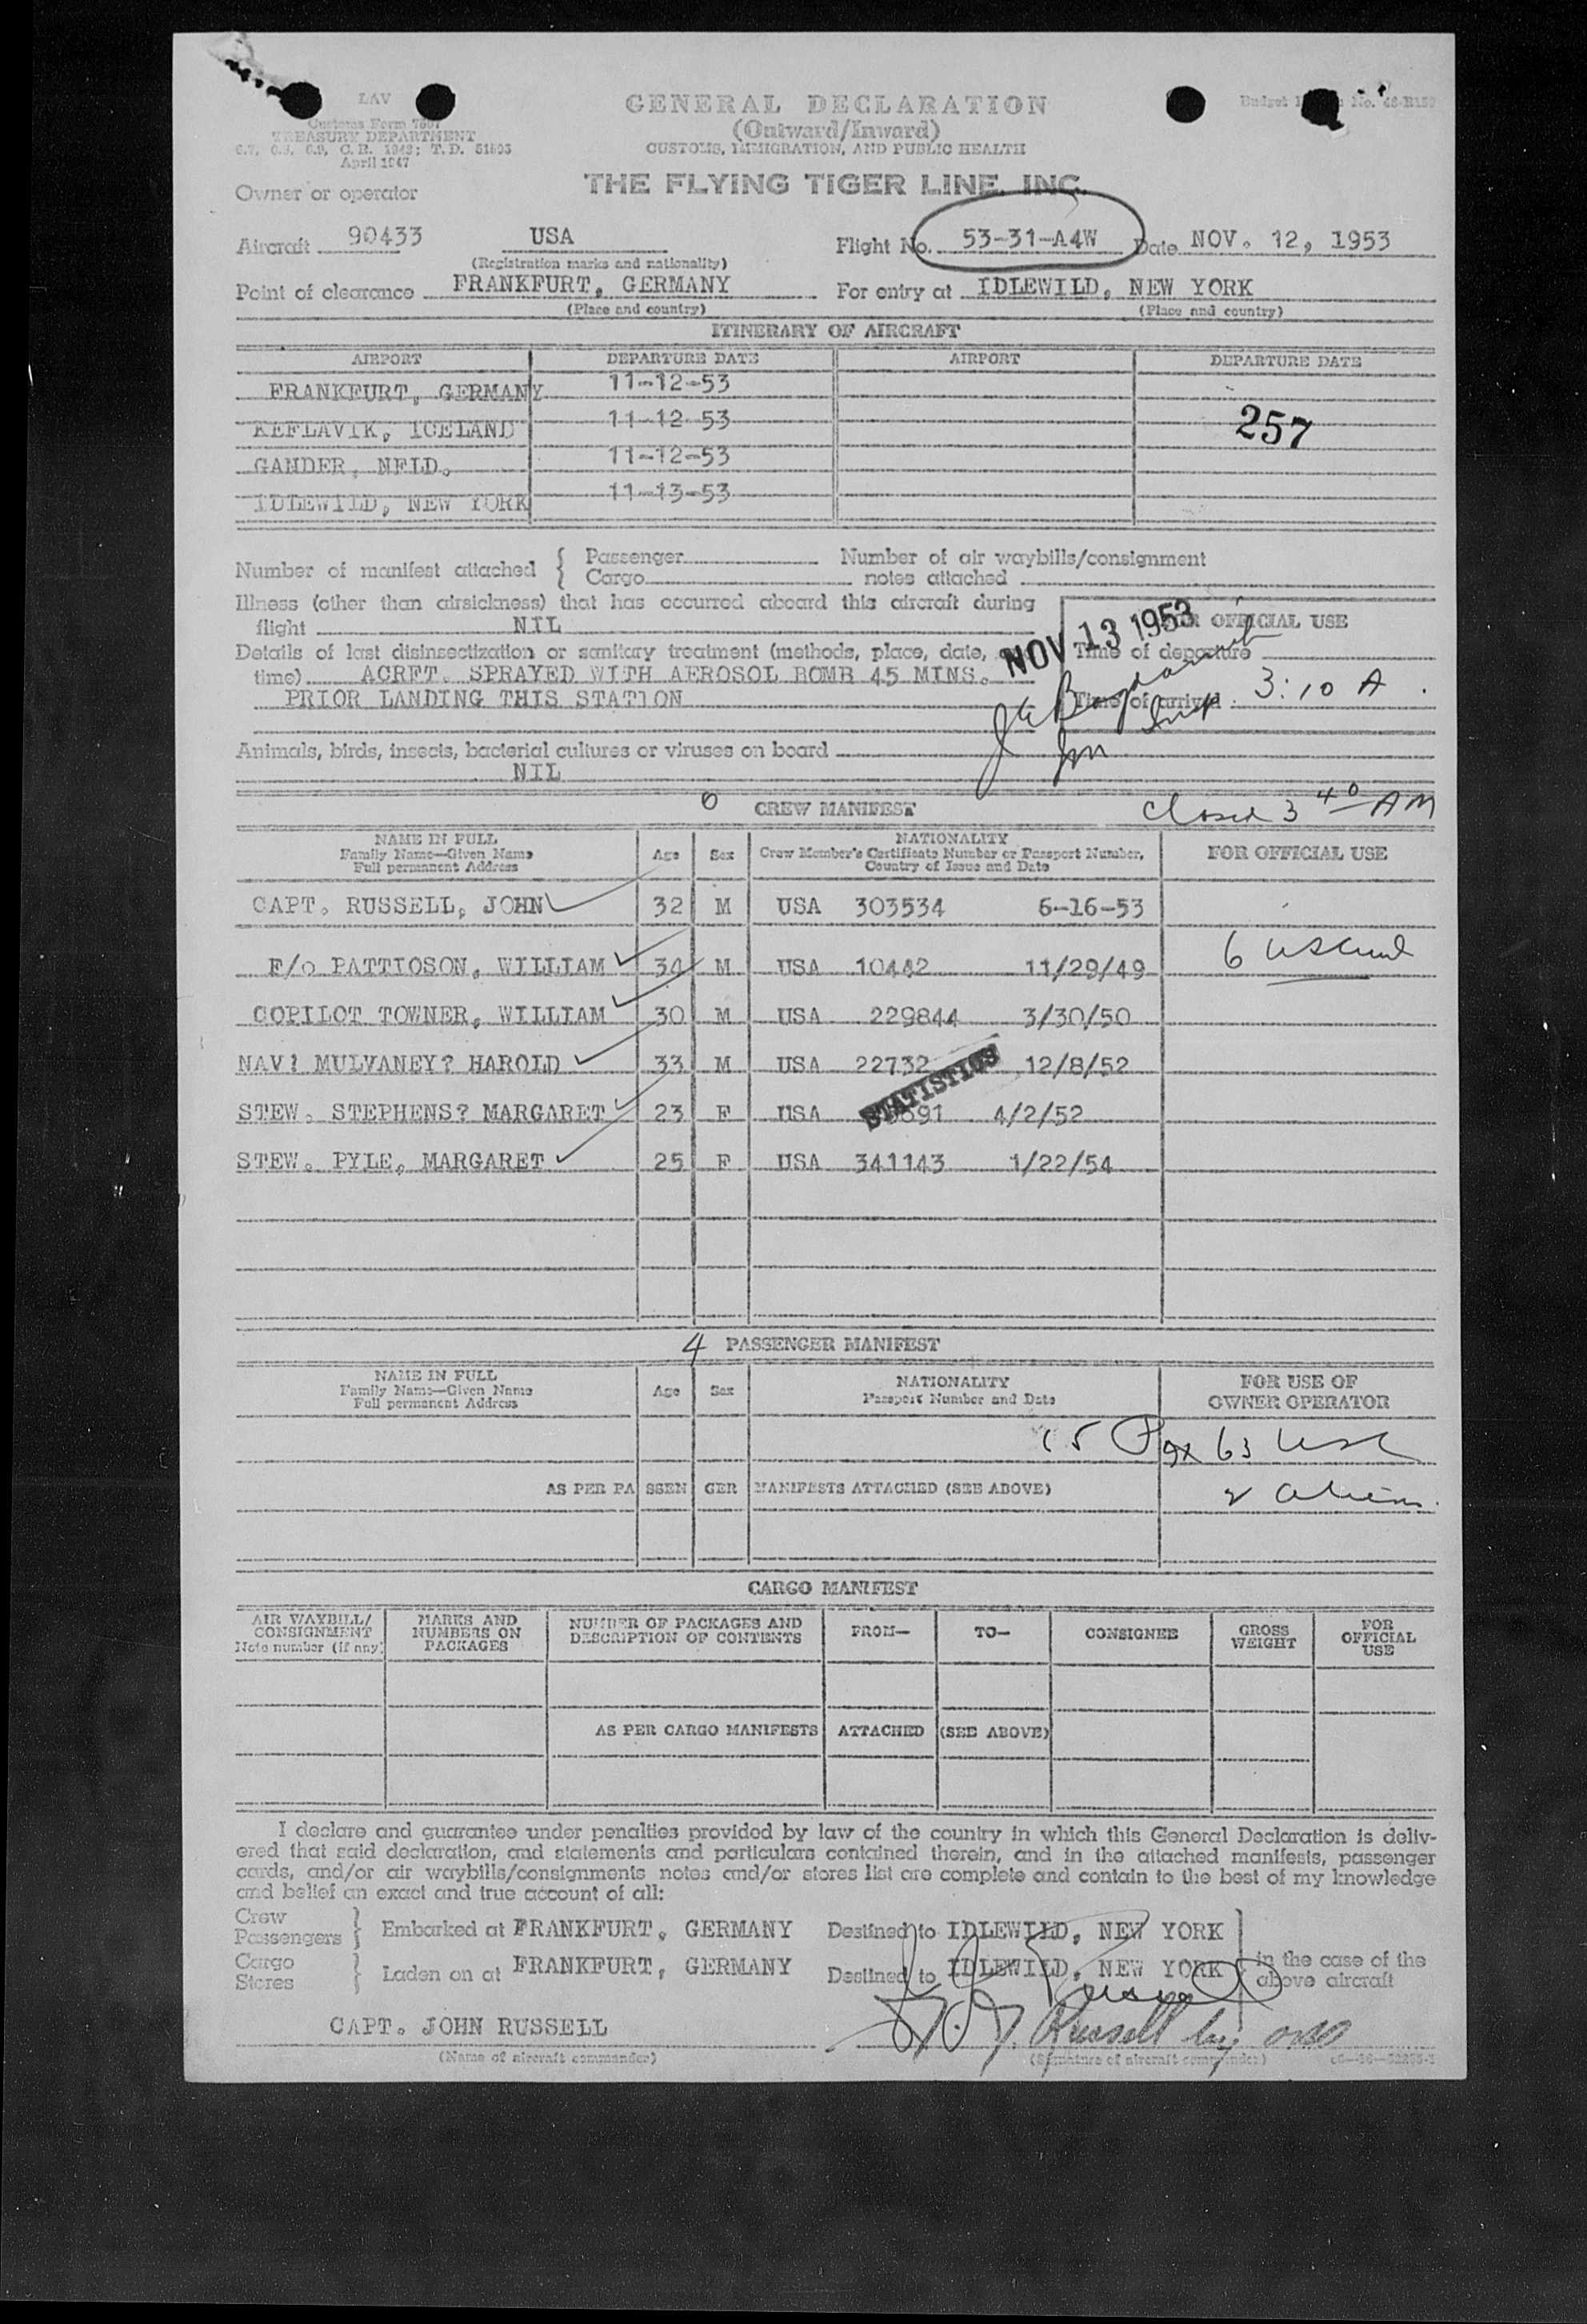 LAV
Customs Form 7507
TREASURY DEPARTMENT
6.7, 6.8, 6.9, C. R. 1943; T. D. 51805
April 1947
GENERAL DECLARATION
(Outward/Inward)
CUSTOMS, IMMIGRATION, AND PUBLIC HEALTH
Budget No.
THE FLYING TIGER LINE, INC.
Owner or operator
Aircraft 90433 USA Flight No. 53-31-A4W Date NOV. 12, 1953
(Registration marks and nationality)
Point of clearance FRANKFURT, GERMANY For entry at IDLEWILD, NEW YORK
(Place and country) (Place and country)
ITINERARY OF AIRCRAFT
AIRPORT DEPARTURE DATE AIRPORT DEPARTURE DATE
FRANKFURT, GERMANY 11-12-53
KEFLAVIK, ICELAND 11-12-53 257
GANDER, NFLD. 11-12-53
IDLEWILD, NEW YORK 11-13-53
Number of manifest attached { Passenger Number of air waybills/consignment
Cargo notes attached
Illness (other than airsickness) that has occurred aboard this aircraft during
flight NIL
NOV 13 1953 OFFICIAL USE
Details of last disinsectization or sanitary treatment (methods, place, date,
time) ACRFT. SPRAYED WITH AEROSOL BOMB 45 MINS.
PRIOR LANDING THIS STATION
Time of departure
Time of arrival 3:10 A
Animals, birds, insects, bacterial cultures or viruses on board
NIL
0 CREW MANIFEST Closed 3 40 AM
NAME IN FULL
Family Name—Given Name
Full permanent Address
Age Sex
NATIONALITY
Crew Member's Certificate Number or Passport Number,
Country of Issue and Date
FOR OFFICIAL USE
CAPT. RUSSELL, JOHN 32 M USA 303534 6-16-53
F/o PATTIOSON, WILLIAM 34 M USA 10442 11/29/49 6
COPILOT TOWNER, WILLIAM 30 M USA 229844 3/30/50
NAV! MULVANEY? HAROLD 33 M USA 22732 12/8/52
STATISTICS
STEW. STEPHENS? MARGARET 23 F USA 4/2/52
STEW. PYLE, MARGARET 25 F USA 341143 1/22/54
4 PASSENGER MANIFEST
NAME IN FULL
Family Name—Given Name
Full permanent Address
Age Sex
NATIONALITY
Passport Number and Date
FOR USE OF
OWNER OPERATOR
63
AS PER PASSENGER MANIFESTS ATTACHED (SEE ABOVE) 2 Aliens
CARGO MANIFEST
AIR WAYBILL/
CONSIGNMENT
Note number (if any)
MARKS AND
NUMBERS ON
PACKAGES
NUMBER OF PACKAGES AND
DESCRIPTION OF CONTENTS
FROM— TO— CONSIGNEE
GROSS
WEIGHT
FOR
OFFICIAL
USE
AS PER CARGO MANIFESTS ATTACHED (SEE ABOVE)
I declare and guarantee under penalties provided by law of the country in which this General Declaration is deliv-
ered that said declaration, and statements and particulars contained therein, and in the attached manifests, passenger
cards, and/or air waybills/consignments notes and/or stores list are complete and contain to the best of my knowledge
and belief an exact and true account of all:
Crew
Passengers } Embarked at FRANKFURT, GERMANY Destined to IDLEWILD, NEW YORK
Cargo
Stores } Laden on at FRANKFURT, GERMANY Destined to IDLEWILD, NEW YORK
in the case of the
above aircraft
CAPT. JOHN RUSSELL Russell by
(Name of aircraft commander) (Signature of aircraft commander)